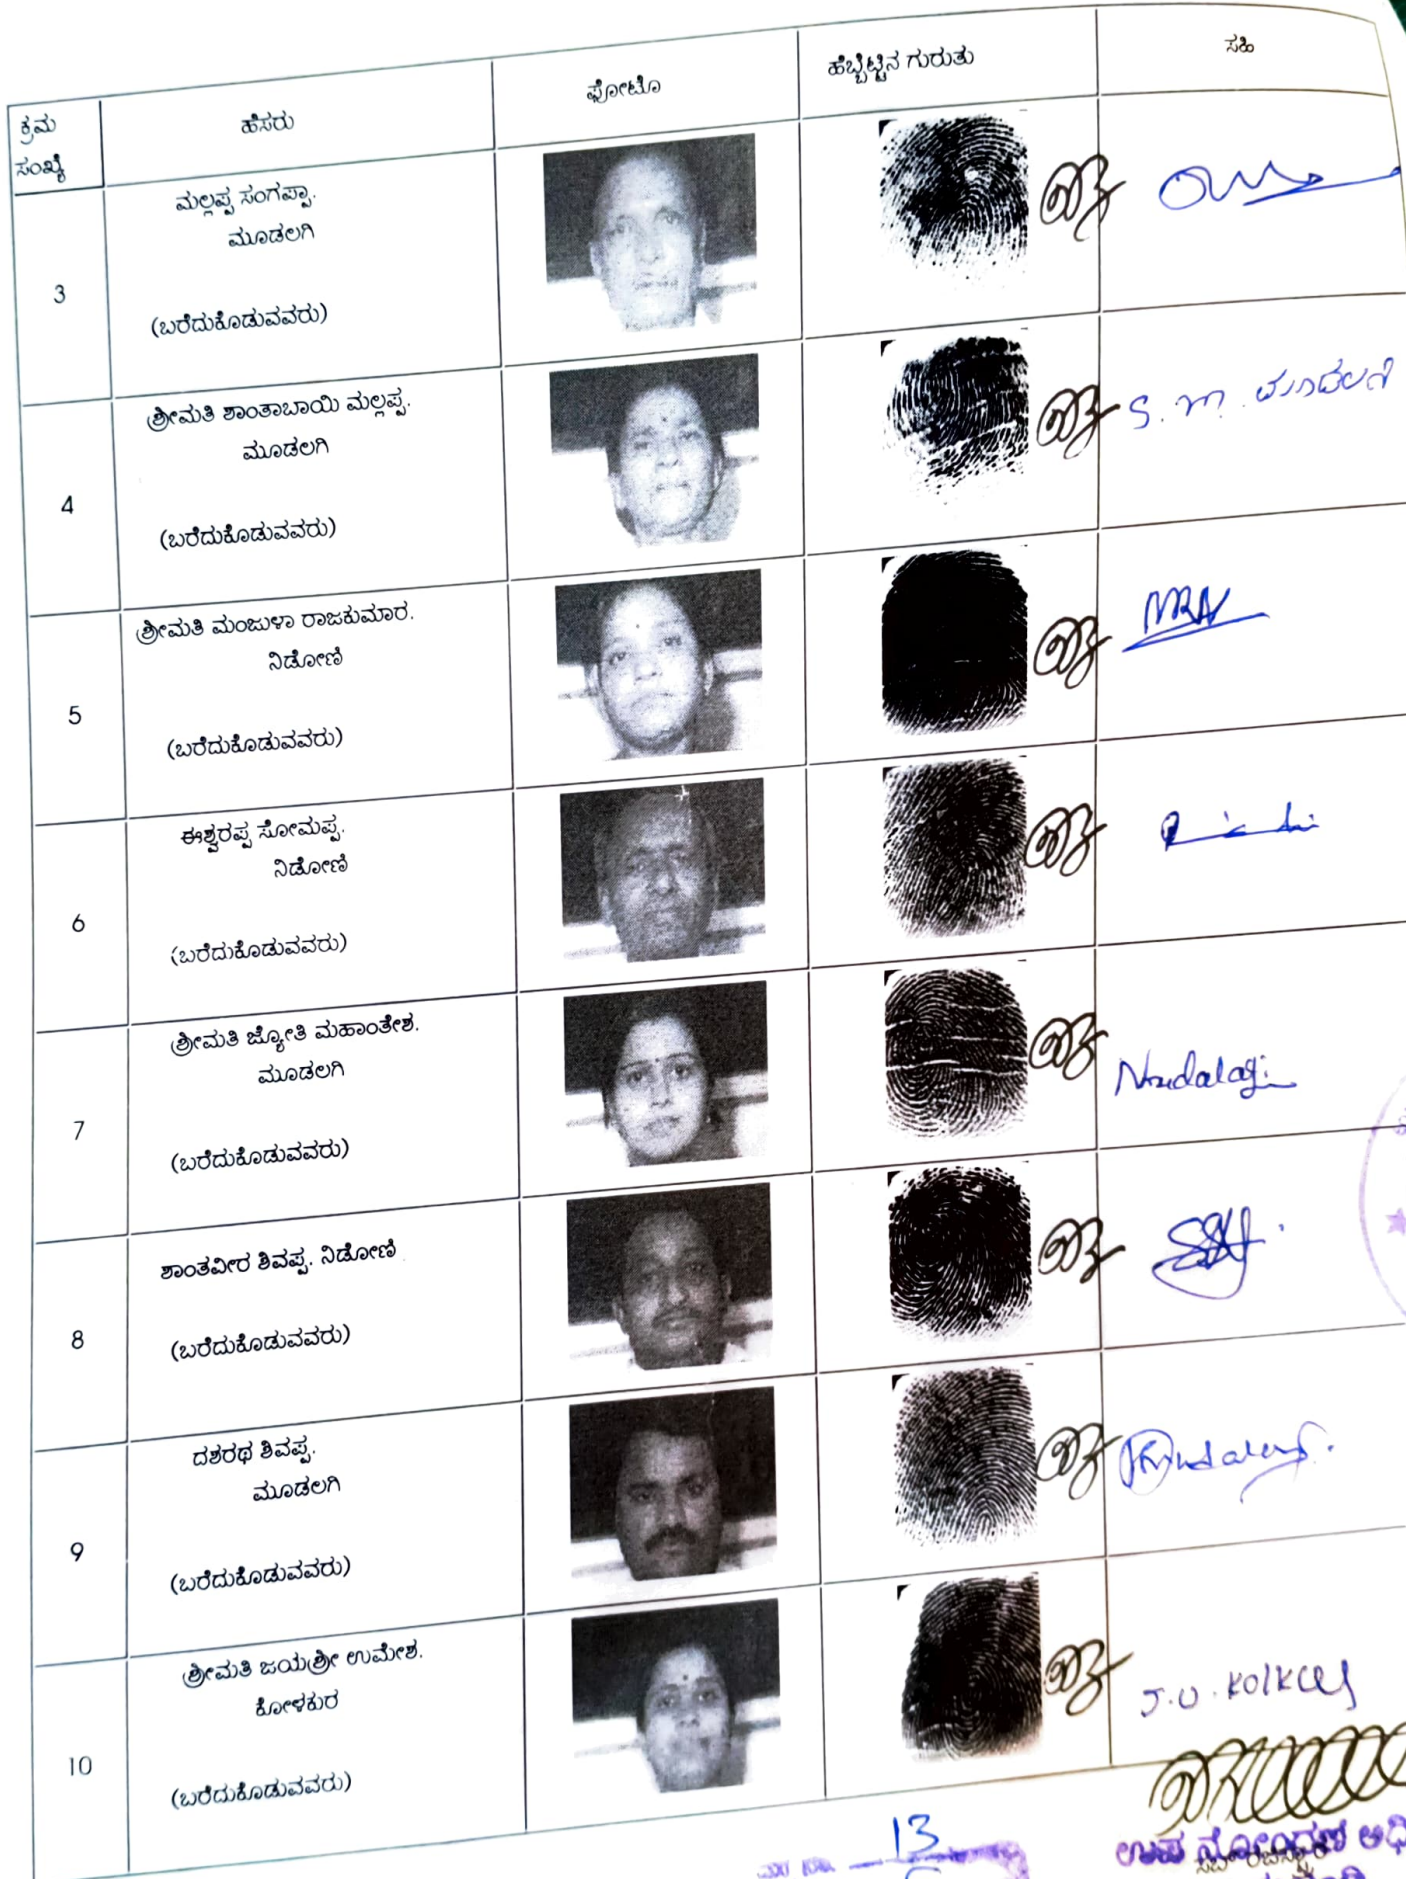 ಕ್ರಮ ಸಂಖ್ಯೆ ಹೆಸರು ಫೋಟೊ ಹೆಬ್ಬೆಟ್ಟಿನ ಗುರುತು ಸಹಿ
ಮಲ್ಲಪ್ಪ ಸಂಗಪ್ಪಾ.
ಮೂಡಲಗಿ
3
(ಬರೆದುಕೊಡುವವರು)
ಶ್ರೀಮತಿ ಶಾಂತಾಬಾಯಿ ಮಲ್ಲಪ್ಪ.
ಮೂಡಲಗಿ
S. M. ಮೂಡಲಗಿ
4
(ಬರೆದುಕೊಡುವವರು)
ಶ್ರೀಮತಿ ಮಂಜುಳಾ ರಾಜಕುಮಾರ.
ನಿಡೋಣಿ
5
(ಬರೆದುಕೊಡುವವರು)
ಈಶ್ವರಪ್ಪ ಸೋಮಪ್ಪ.
ನಿಡೋಣಿ
6
(ಬರೆದುಕೊಡುವವರು)
ಶ್ರೀಮತಿ ಜ್ಯೋತಿ ಮಹಾಂತೇಶ.
ಮೂಡಲಗಿ
7
(ಬರೆದುಕೊಡುವವರು)
ಶಾಂತವೀರ ಶಿವಪ್ಪ. ನಿಡೋಣಿ
8
(ಬರೆದುಕೊಡುವವರು)
ದಶರಥ ಶಿವಪ್ಪ.
ಮೂಡಲಗಿ
9
(ಬರೆದುಕೊಡುವವರು)
ಶ್ರೀಮತಿ ಜಯಶ್ರೀ ಉಮೇಶ.
ಕೋಳಕುರ
J.U.
10
(ಬರೆದುಕೊಡುವವರು)
13
ಉಪ ನೋಂದಣಿ